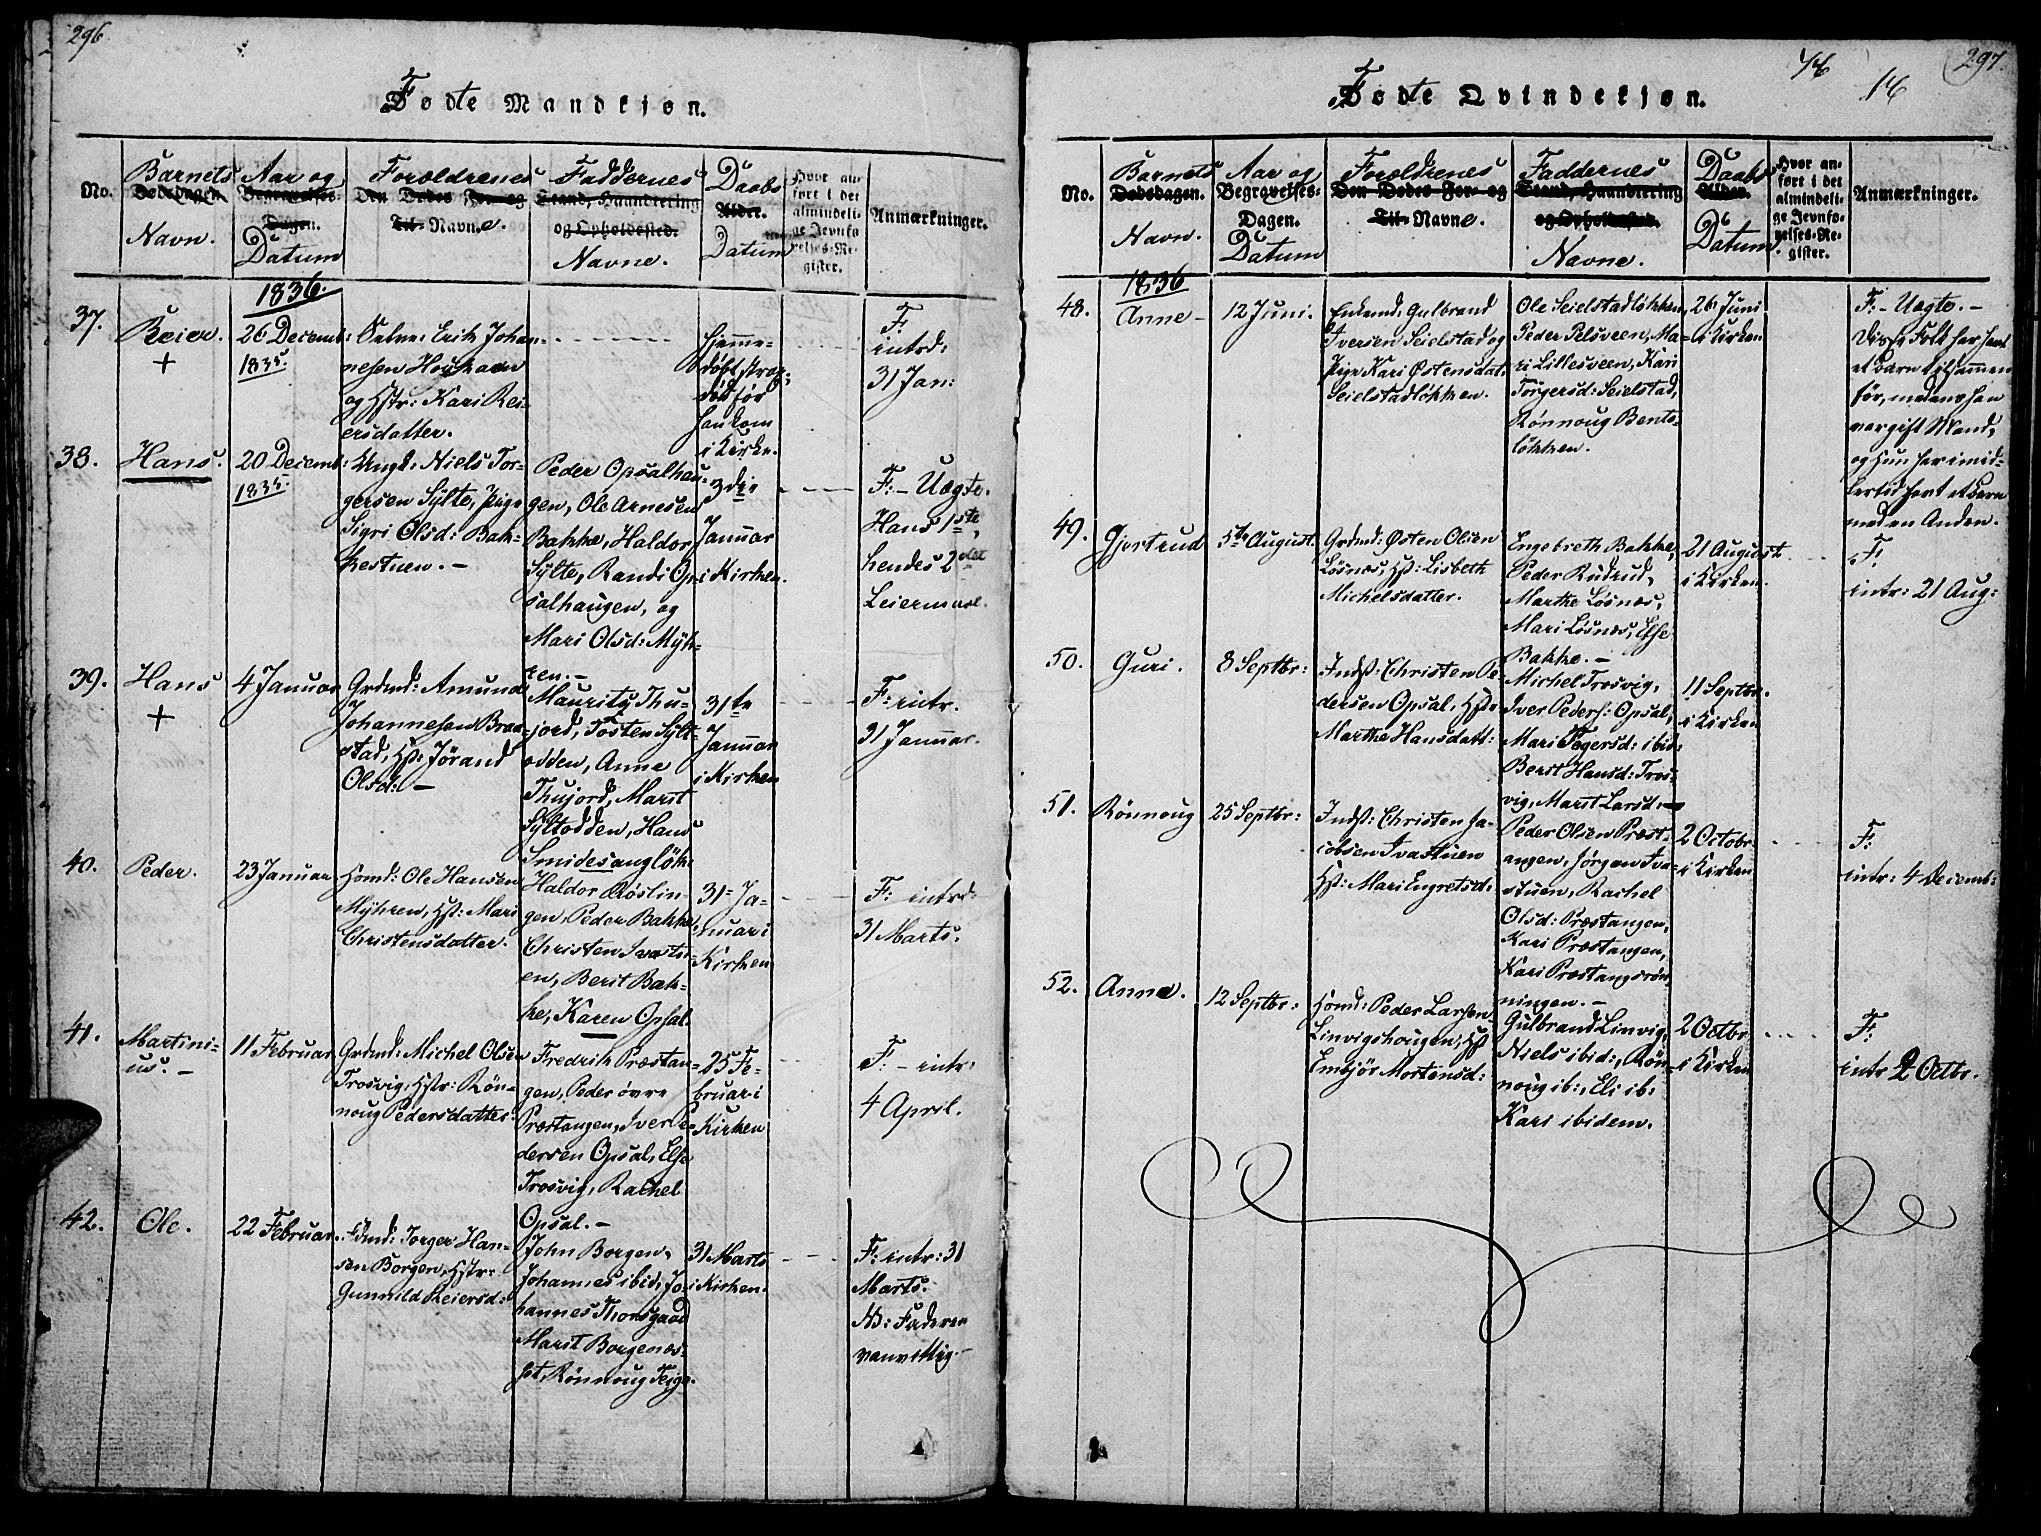 296
Fodte Mandkjøn.
No.
Barnets
Dødsdagen.
Navn.
Aar og
Begravelses-
Dagen.
Datum
Forældrenes
Den Dødes For- og
Til- Navne.
Faddernes
Stand, Haandtering
og Opholdssted.
Navne.
Daabs
Alder.
Datum
Hvor an-
ført i det
almindeli-
ge Jevnfø-
relses-Re-
gister.
Anmærkninger.
1836.
37.
Reier.
+
26 Decemb:
1835.
Erik Johan-
nesen
og Hstr: Kari Rei-
ersdatter.
Hjemme-
døbt, strax
død før
han kom
i Kirke.
F:
intrd:
31 Jan:
38.
Hans.
20 Decemb:
1835.
Ungk: Niels Tor-
gersen Sylte, Pige
Sigri Olsd: Bak-
kestuen. -
Peder Opsalhau-
gen, Ole Arnesen
Bakke, Haldor
Sylte, Randi Op-
salhaugen, og
Mari Olsd: Myh-
ren. -
3die
Januar
i Kirken.
F: - Uægte.
Hans 1ste,
hendes 2det
Leiermaal.
39.
Hans
+
4 Januar
Grdmd: Amund
Johannesen Braa-
stad, Hst: Jørand
Olsd: -
Mauritz Thu-
jord, Tosten Sylt-
odden, Anne
Thujord, Marit
Syltodden, Hans
Smidesangløkk
31te
Januar
i Kirken
F: intr.
31 Januar.
40.
Peder.
23 Januar
Hsmd: Ole Hansen
Myhren, Hst: Mari
Christensdatter.
Haldor Røslin-
gen, Peder Bakke,
Christen Ivastu-
en, Berit Bak-
ke, Karen Opsal.
31= Ja-
nuar i
Kirken
F: intrd:
31 Marts.
41.
Martini-
us. -
11 Februar
Grdmd: Michel Olsen
Trosvig, Hstr: Røn-
noug Pedersdatter.
Fredrik Præstan-
gen, Peder øvre
Præstangen, Iver Pe-
dersen Opsal, Else
Trosvig, Rachel
Opsal. -
25 Fe-
bruar i
Kirken
F: - intr:
4 April.
42.
Ole.
22 Februar.
Torger Han-
sen Borgen, Hstr:
Gunnild Reiersd:
John Borgen,
Johannes ibid, Jo-
hannes Thorsgaard
Marit Borgenæs-
set, Rønnoug Teige.
31 Marts
i Kirken.
F: intr: 31
Marts.
NB: Faderen
vanvittig. -
297.
16
Fodte Qvindekjøn.
No.
Barnets
Dødsdagen.
Navn.
Aar og
Begravelses-
Dagen.
Datum
Forældrenes
Den Dødes For- og
Til- Navne.
Faddernes
Stand, Haandtering
og Opholdssted.
Navne.
Daabs
Alder.
Datum
Hvor an-
ført i det
almindeli-
ge Jevnfø-
relses-Re-
gister.
Anmærkninger.
1836
48.
Anne -
12 Juni.
Enkemd: Gulbrand
Iversen Seielstad og
Pige Kari Østensdat:
Seielstadløkken.
Ole Seielstadløkken,
Peder Pelsveen, Ma-
ri Lillesveen, Kari
Torgersd: Seielstad,
Rønnoug Bents-
løkken.
26 Juni
i Kirken
F: - Uægte. -
Disse Folk har havt
et Barn tilsammen
før, medens han
var gift Mand,
og hun har imid-
lertid havt et Barn
med en Anden.
49.
Gjertrud
5te August.
Grdmd: Østen Olsen
Løsnæs, Hst: Lisbeth
Michelsdatter.
Engebreth Bakke,
Peder Rudrud,
Marthe Løsnæs,
Mari Løsnæs, Else
Bakke. -
21 August
i Kirken.
F:
intr: 21 Aug:
50.
Guri.
8 Septbr:
Indst: Christen Pe-
dersen Opsal, Hst:
Marthe Hansdatt:
Michel Trosvig,
Iver Peders: Opsal,
Mari Tegersd: ibid:
Berit Hansd: Tros-
vig, Marit Larsd: -
11 Septbr.
i Kirken
51.
Rønnoug
25 Septbr:
Indst: Christen Ja-
cobsen Ivastuen
Hst: Mari Engretsd:
Peder Olsen Præst-
angen, Jørgen Iva-
stuen, Rachel
Olsd: Præstangen,
Kari Præstangen,
Kari Præstangsrøn-
ningen. -
2 Octobr.
i Kirken
F:
intr: 4 Decemb:
52.
Anne.
12 Septbr:
Hsmd: Peder Larsen
Linvigshougen, Hst
Embjør Mortensd:
Gulbrand Linvig,
Niels ibid:, Røn-
noug ib:, Eli ib:
Kari ibidem.
2 Octbr
i Kirken
F:
intr 2 Octbr.